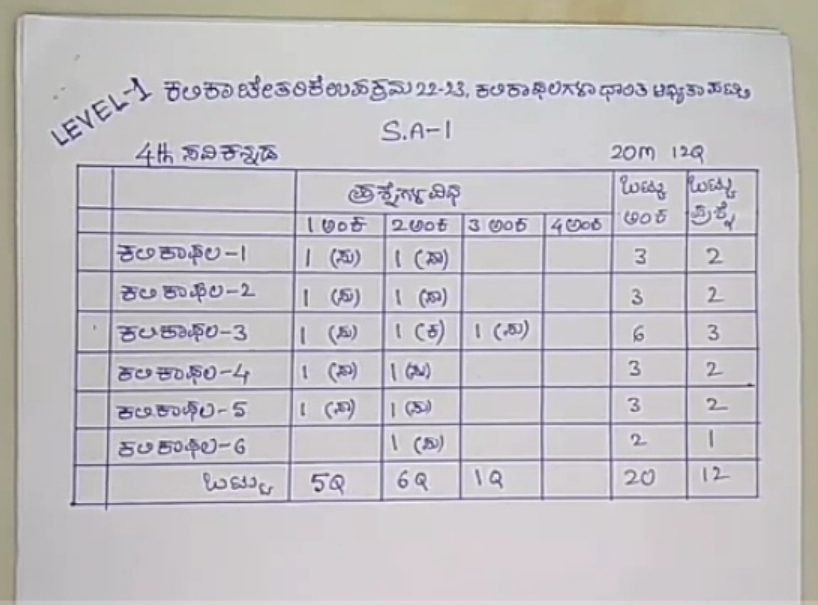 LEVEL-1 ಕಲಿಕಾ ಚೇತರಿಕೆ ಉಪಕ್ರಮ 22-23, ಕಲಿಕಾಫಲಗಳಾಧಾರಿತ ಆದ್ಯತಾ ಪಟ್ಟಿ
S.A-1
4th ಸವಿಕನ್ನಡ 20m 12Q
ಪ್ರಶ್ನೆಗಳ ವಿಧ ಒಟ್ಟು ಅಂಕ ಒಟ್ಟು ಪ್ರಶ್ನೆ
1 ಅಂಕ 2 ಅಂಕ 3 ಅಂಕ 4 ಅಂಕ
ಕಲಿಕಾಫಲ-1 1 (ಸು) 1 (ಸಾ) 3 2
ಕಲಿಕಾಫಲ-2 1 (ಸು) 1 (ಸಾ) 3 2
ಕಲಿಕಾಫಲ-3 1 (ಸು) 1 (ಕ) 1 (ಸು) 6 3
ಕಲಿಕಾಫಲ-4 1 (ಸಾ) 1 (ಸು) 3 2
ಕಲಿಕಾಫಲ-5 1 (ಸಾ) 1 (ಸು) 3 2
ಕಲಿಕಾಫಲ-6 1 (ಸು) 2 1
ಒಟ್ಟು 5Q 6Q 1Q 20 12